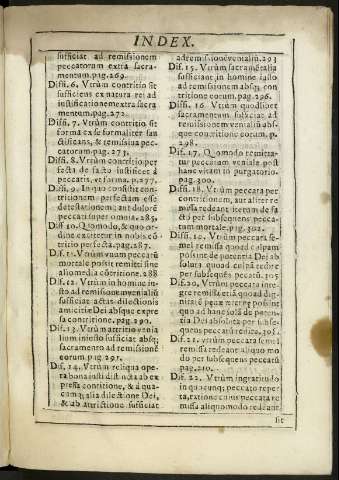 INDEX.
sufficiat ad remissionem
peccatorum extra sacra-
mentum. pag. 269.
Diffi. 6. Vtrùm contritio sit
sufficiens ex natura rei ad
iustificationem extra sacra
mentum. pag. 272.
Diffi. 7. Vtrùm contritio sit
forma ex se formaliter san
ctificans, & remissiua pec-
catorum. pag. 273.
Diffi. 8. Vtrùm contritio per
fecta de facto sufficiet à
peccatis, vt forma. p. 277.
Diffi. 9. In quo consistit con-
tritionem perfectam esse
detestationem, aut dolorē
peccati super omnia. 285.
Diff. 10. Quomodo, & quo or-
dine excitetur in nobis cō
tritio perfecta. pag. 287.
Dif. 11. Vtrùm vnum peccatū
mortale possit remitti sine
alio media cōtritione. 288
Dif. 12. Vtrùm in homine iu-
sto ad remissionē venialiū
sufficiat actus dilectionis
amicitiæ Dei absque expre
sa contritione. pag. 290.
Dif. 13. Vtrùm attritio venia
lium in iusto sufficiat absq;
sacramento ad remissionē
eorum. pag. 291.
Dif. 14. Vtrùm reliqua ope-
ra bona iusti distincta ab ex
pressa contritione, & à qua-
cumq; alia dilectione Dei,
& ab attritione sufficiat
ad remissionē venialiū. 293
Dif. 15. Vtrùm sacramētalia
sufficiant in homine iusto
ad remissionem absq; con
tritione eorum. pag. 296.
Diffi. 16 Vtrùm quodlibet
sacramentum sufficiat ad
remissionem venialiū abs-
que contritione eorum. p.
298.
Dif. 17. Quomodo remitta-
tur peccatum veniale post
hanc vitam in purgatorio.
pag. 300.
Diffi. 18. Vtrùm peccata per
contritionem, aut aliter re
missa redeant iterum de fa-
cto per subsequens pecca-
tum mortale. pag. 302.
Diffi. 19. Vtrùm peccata se-
mel remissa quoad culpam
possint de potentia Dei ab
soluta quoad culpā redire
per subsequēs peccatū. 305
Dif. 20. Vtrùm peccata inte-
gre remissa etiā quoad dig-
nitatē pœnæ æternæ possint
quo ad hanc solā de poten-
tia Dei absoluta per subse-
quens peccatū redire. 308.
Dif. 21. Vtrùm peccata semel
remissa redeant aliquo mo
do per subsequens peccatū
pag. 310.
Diff. 22. Vtrùm ingratitudo
in quacunq; peccati reper
ta, ratione cuius peccata re
missa aliquomodo redeant
sit